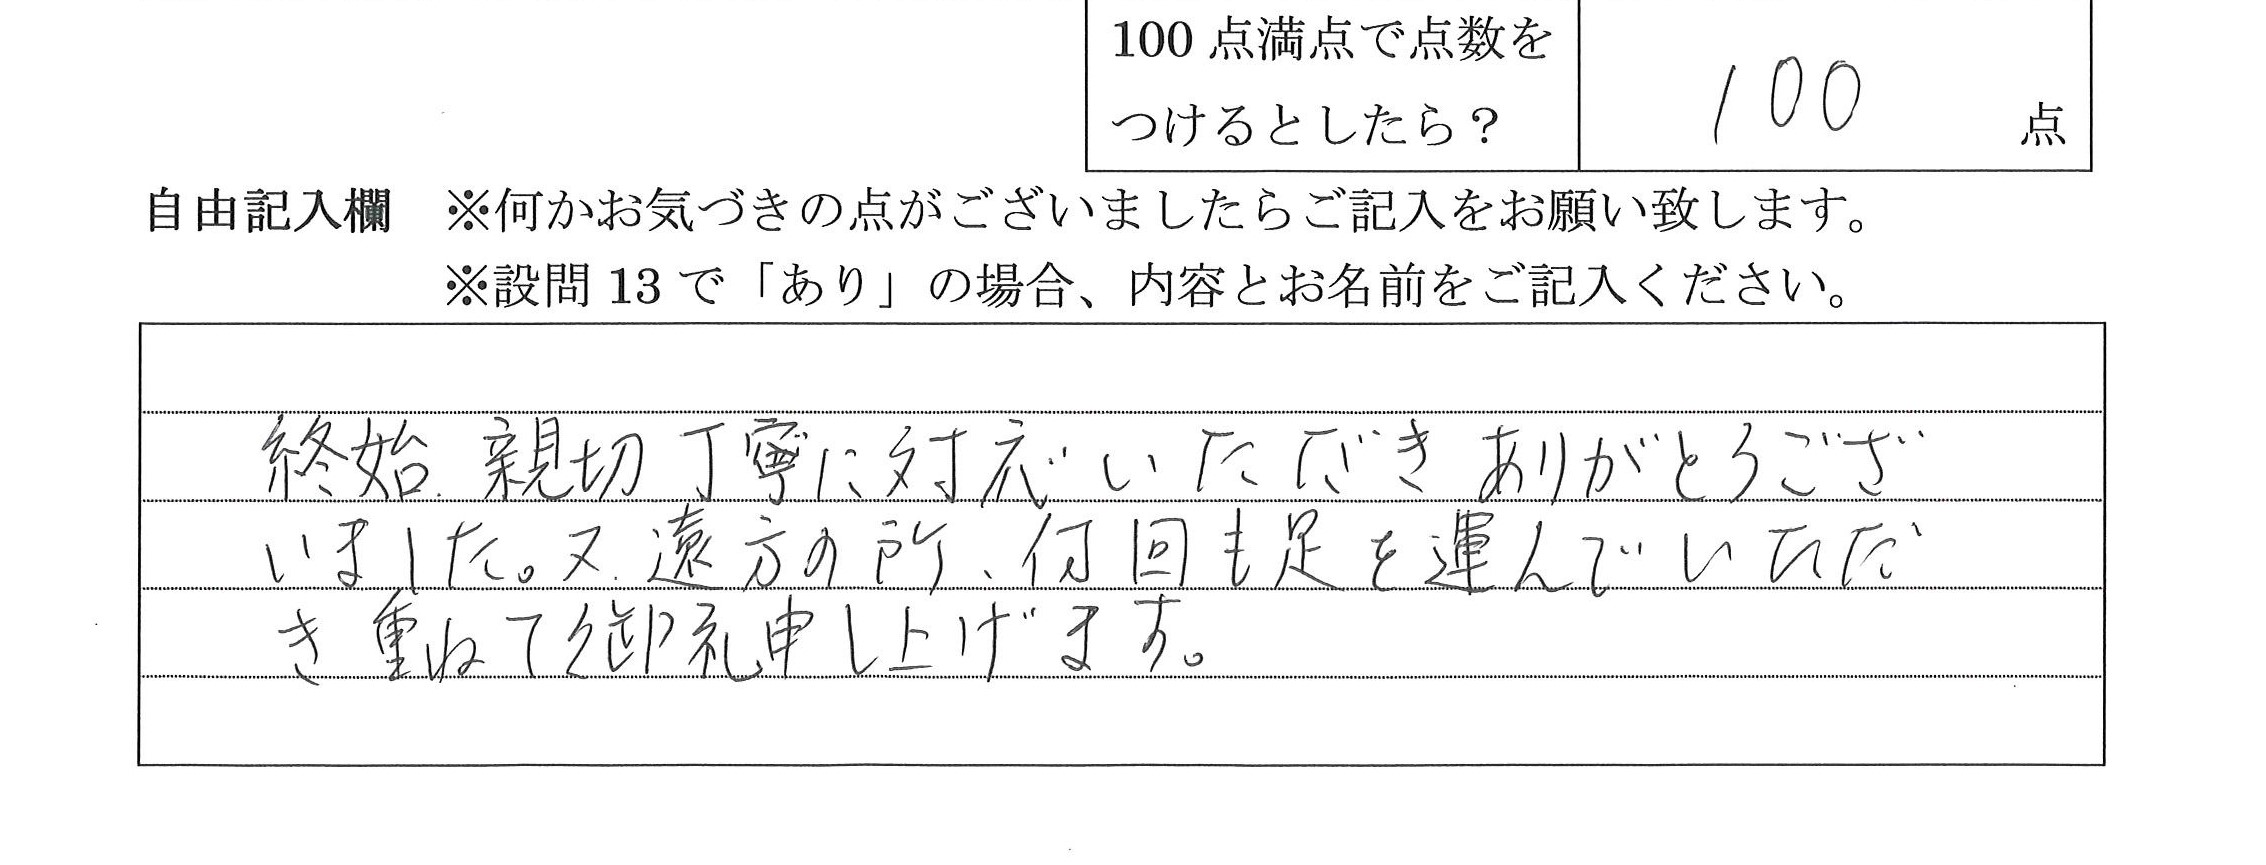 100 点満点で点数を
つけるとしたら？
100 点
自由記入欄 ※何かお気づきの点がございましたらご記入をお願い致します。
※設問 13 で「あり」の場合、内容とお名前をご記入ください。
終始、親切丁寧に対応いただきありがとうござ
いました。又、遠方の所、何回も足を運んでいただ
き重ねて御礼申し上げます。